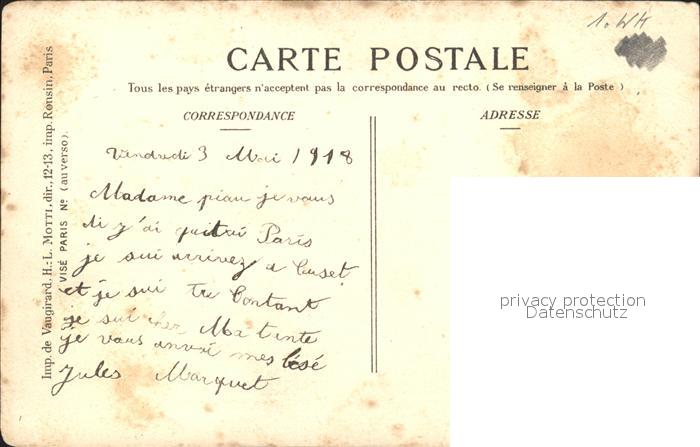 1. WK
CARTE POSTALE
Tous les pays étrangers n'acceptent pas la correspondance au recto. (Se renseigner à la Poste)
CORRESPONDANCE
ADRESSE
Vendredi 3 Mai 1918
Madame piau je vous
di j'ai quitai Paris
je sui arrivez a Cuset
et je sui tre Contant
je sui cher Ma tente
je vous anvoi mes bésé
Jules Marquet
Imp. de Vaugirard, H.-L. MOTTI, dir., 12-13, imp. Ronsin, Paris
VISÉ PARIS No (au verso).
privacy protection
Datenschutz